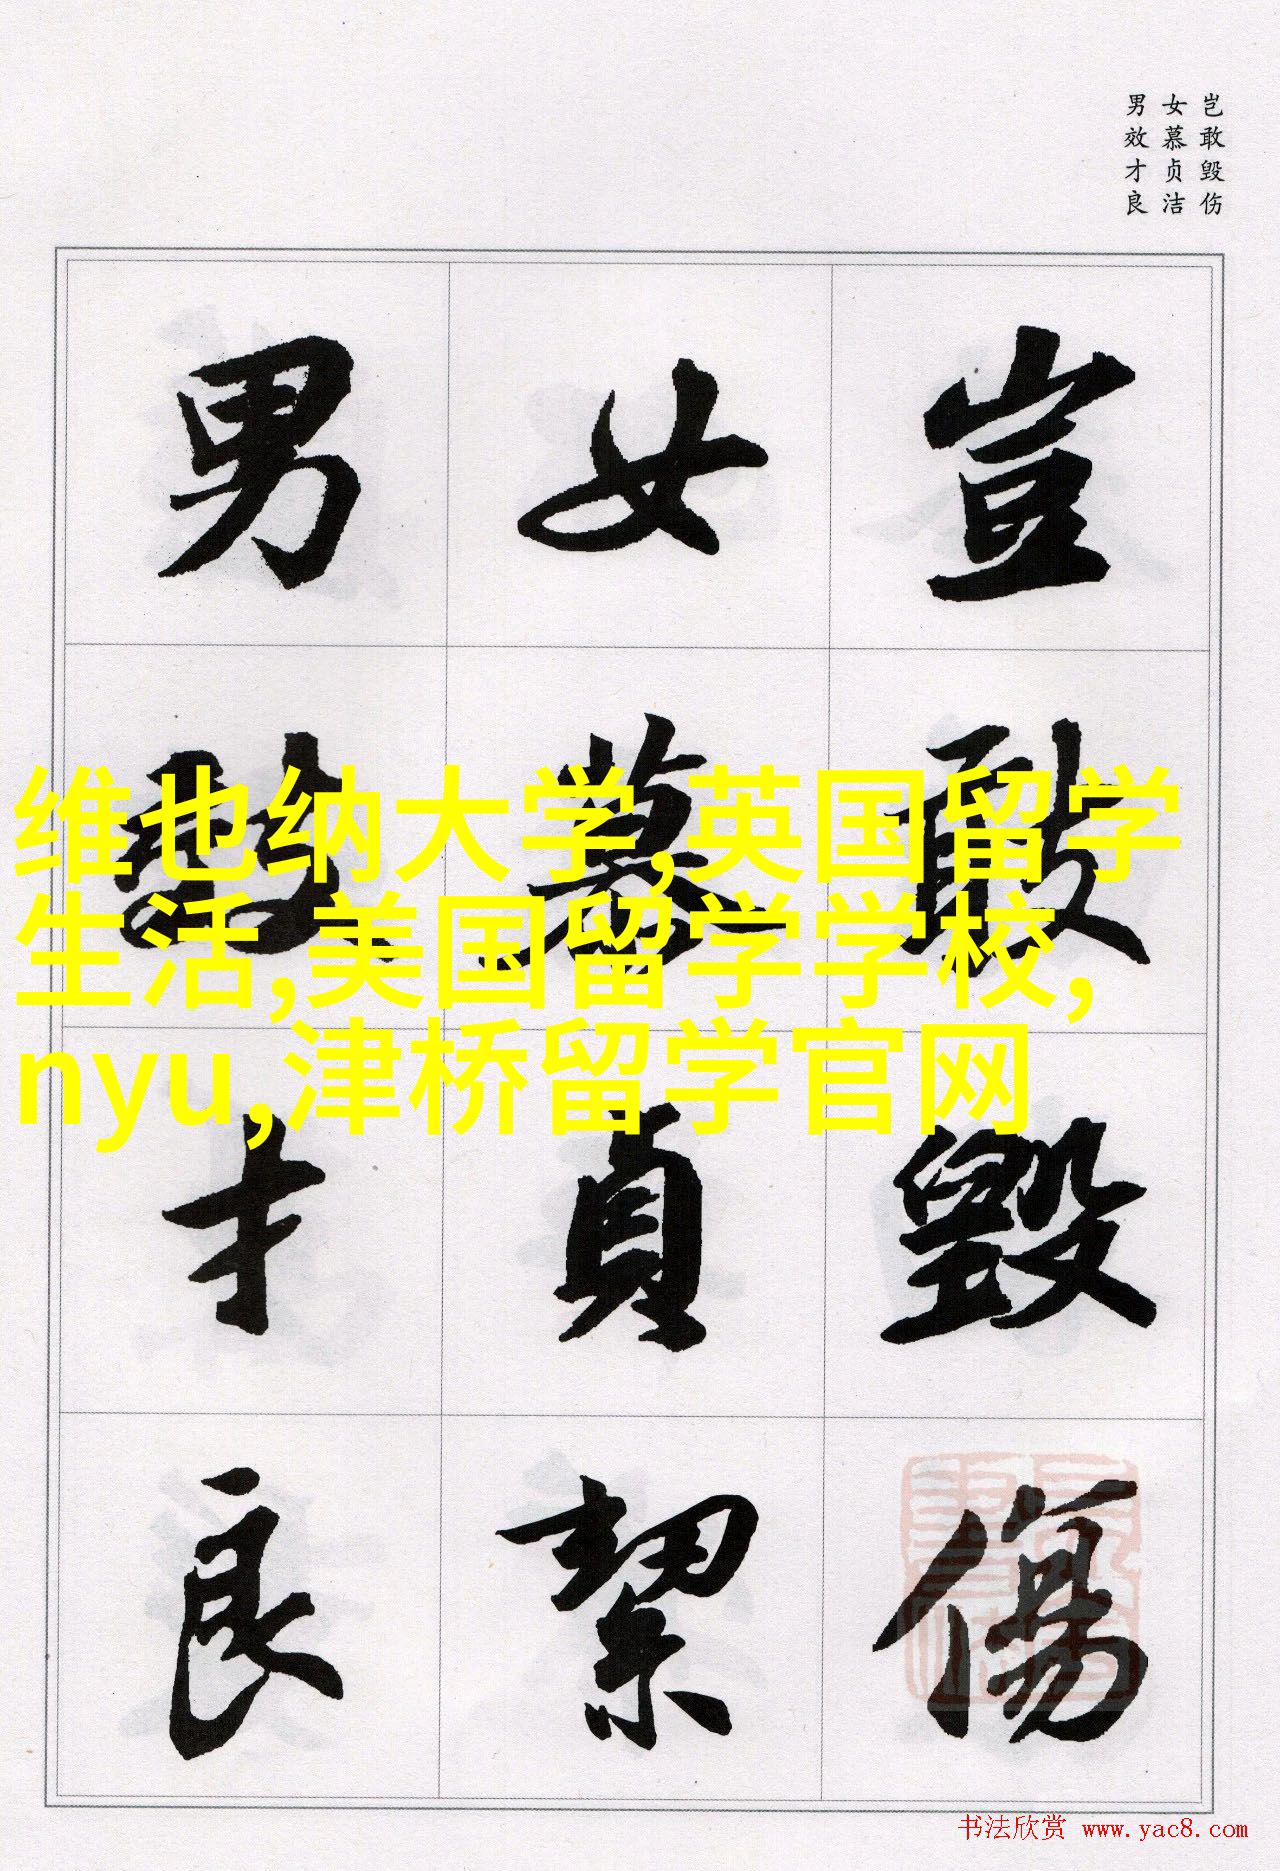 岂敢毁伤
女慕贞洁
男效才良
豈敢毀傷
女慕貞絜
男效才良
维也纳大学,英国留学
生活,美国留学学校,
nyu,津桥留学官网
书法欣赏 www.yac8.com